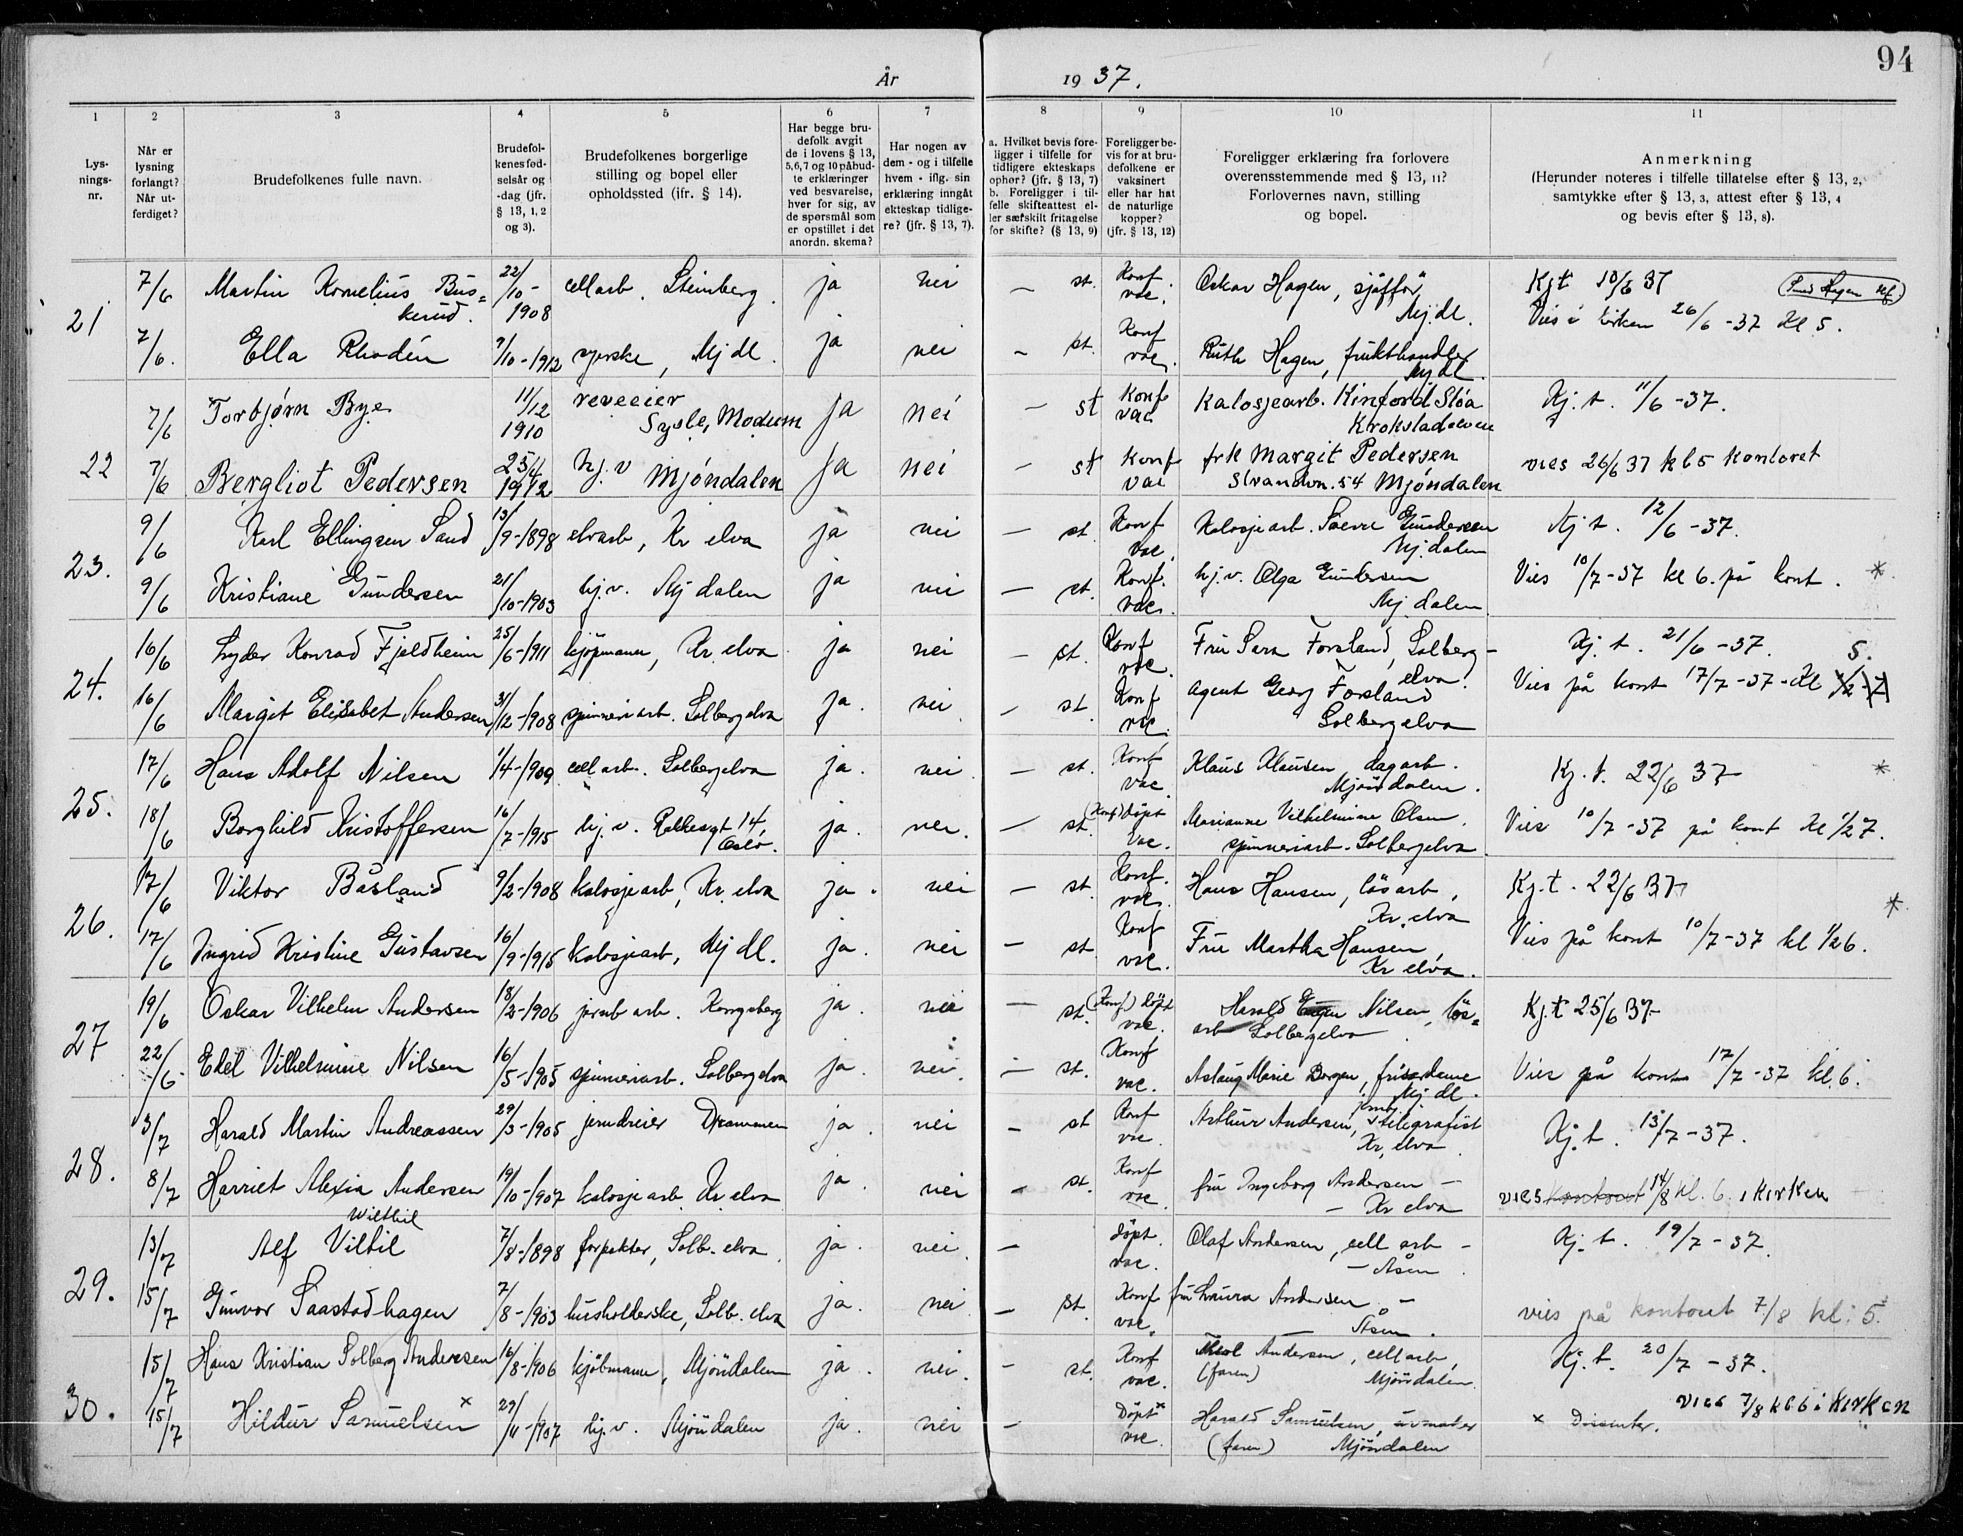 94
År 1937.
1 2 3 4 5 6 7 8 9 10 11
Lys-
nings-
nr.
Når er
lysning
forlangt?
Når ut-
ferdiget?
Brudefolkenes fulle navn.
Brudefol-
kenes fød-
selsår og
-dag (jfr.
§ 13, 1, 2
og 3).
Brudefolkenes borgerlige
stilling og bopel eller
opholdssted (ifr. § 14).
Har begge bru-
defolk avgit
de i lovens § 13,
5,6,7 og 10 påbud-
te erklæringer
ved besvarelse,
hver for sig, av
de spørsmål som
er opstillet i det
anordn. skema?
Har nogen av
dem - og i tilfelle
hvem - iflg. sin
erklæring inngått
ekteskap tidlige-
re? (jfr. § 13, 7).
a. Hvilket bevis fore-
ligger i tilfelle for
tidligere ekteskaps
ophør? (jfr. § 13, 7)
b. Foreligger i til-
felle skifteattest el-
ler særskilt fritagelse
for skifte? (§ 13, 9)
Foreligger be-
vis for at bru-
defolkene er
vaksinert
eller har hat
de naturlige
kopper?
(jfr. § 13, 12)
Foreligger erklæring fra forlovere
overensstemmende med § 13, 11?
Forlovernes navn, stilling
og bopel.
Anmerkning
(Herunder noteres i tilfelle tillatelse efter § 13, 2,
samtykke efter § 13, 3, attest efter § 13, 4
og bevis efter § 13, 8).
21
7/6 Martin Kornelius Bus= 22/10- cell arb. Steinberg. ja nei — st. Konf Oskar Hagen, sjåffør Kjt 10/6 37
kerud. 1908 vac. Mj.dl. Vies i kirken 26/6-37 kl 5.
7/6. Ella Rhodén 9/10-1912 syerske, Mj dl. ja nei — st. Konf vac. Ruth Hagen, frukthandler
Mj dl.
22
7/6 Torbjørn Bye 11/12 1910 reveeier ja nei — st Konf vac Kalosjearb. Kinford Sløa Kj. t. 11/6-37.
Sysle, Modum Krokstadelven
7/6 Bergliot Pedersen 25/4 1912 hj.v Mjøndalen ja nei — st konf vac frk Margit Pedersen vies 26/6 37 kl 5 kontoret
Strandvn. 54 Mjøndalen
23.
9/6 Karl Ellingsen Sand 13/9-1898 elvarb, Kr elva ja nei — st. Konf vac. Kalosje arb. Sævre Gundersen Kj t. 12/6-37.
Mj.dalen
9/6 Kristiane Gundersen 21/10-1903 hj.v. Mj dalen ja nei — st. Konf. vac. hj.v. Olga Gundersen Vies 10/7-37 kl 6. på kont. *
Mj dalen
24.
16/6 Lyder Konrad Fjeldheim 25/6-1911 kjøpmann, Kr. elva ja nei — st. Konf vac. Fru Sara Forsland, Solberg- Kj. t. 21/6-37. 5.
elva.
16/6 Margit Elisabet Andersen 31/12-1908 spinneriarb. Solbergelva ja. nei — st. Konf vac. agent Georg Forsland Vies på kont 17/7-37-kl 1/2 7
Solbergelva
25.
17/6 Hans Adolf Nilsen 1/4-1909 cell arb. Solbergelva ja. nei — st. Konf vac. Klaus Klausen, dagarb. Kj. t. 22/6 37 *
Mjøndalen.
18/6 Borghild Kristoffersen 16/7-1915 hj.v. Rolkesgt 14, ja. nei. — st. (Konf) døpt Vac. Marianne Vilhelmine Olsen, Vies 10/7-37 på kont kl 1/2 7.
Oslo. spinneriarb. Solbergelva.
26.
17/6 Viktor Båsland 9/2-1908 kalosjearb, Kr. elva ja. nei — st. Konf. vac. Hans Hansen, løsarb, Kj.t. 22/6 37 *
Kr. elva
17/6 Ingrid Kristine Gustavsen 16/9-1915 kalosjearb, Mj dl. ja. nei — st. Konf vac. Fru Martha Hansen Vies på kont 10/7-37 kl 1/2 6.
Kr elva.
27
19/6 Oskar Vilhelm Andersen 18/2-1906 jernb arb. Kongsberg ja. nei — st. (Konf) døpt vac. Harald Nilsen, løs= Kj.t 25/6 37
arb Solbergelva
22/6 Edel Vilhelmine Nilsen 16/5-1905 spinneriarb. Solbergelva ja. nei. — st. Konf vac. Aslaug Marie Borgen, frisørdame Vies på kont 17/7-37 kl. 6.
Mj dl.
28.
3/7 Harald Martin Andreassen 29/3-1905 jerndreier Drammen ja. nei — st Konf vac. Arthur Andersen, jernb. telegrafist Kj. t. 13/7-37.
Kr. elva
8/7 Harriet Alexia Andersen 19/10-1907 kalosje arb. Kr elva ja. nei — st. Konf vac. fru Ingeborg Andersen — vies kontoret 14/8 kl. 6. i kirken
— Kr elva
29.
Wilthil
13/7 Alf Viltil 7/8-1898 forpakter, Solb. elva ja. nei. — døpt. vac. Olaf Andersen, cell arb — Kj. t. 19/7-37.
— Åsen
15/7 Gunvor Saastadhagen 7/8-1903 husholderske, Solb. elva ja. nei — st. Konf vac. fru Laura Andersen — vies på kontoret 7/8 kl: 5.
— Åsen.
30.
15/7 Hans Kristian Solberg Andersen 16/8-1906 kjøbmann, Mjøndalen ja. nei. — st. Konf vac. Andersen, cell arb, Kj. t. 20/7-37.
(faren) Mjøndalen. vies 7/8 kl 6 i kirken
15/7 Hildur Samuelsen x 29/11-1907 hj.v. Mjøndalen ja. nei — Døpt x vac. Harald Samuelsen, urmaker x Dissenter.
(faren) Mjøndalen